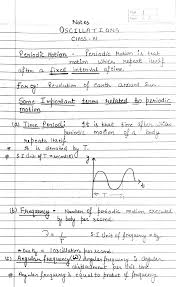 Notes
OSCILLATIONS
CLASS-XI
Periodic Motion - Periodic Motion is that
motion which repeat itself
after a fixed interval of time.
For eg: Revolution of earth around sun.
Some Important terms related to periodic
motion
(a) Time Period: It is that time after which
periodic motion of a body
repeats itself.
* It is denoted by T.
* S.I Unit of T = second(s)
y
T
t
(b) Frequency - Number of periodic motion executed
by body per second.
S.I Unit of frequency = Hz
* One Hz = 1 oscillation per second
(c) Angular Frequency (ω) Angular frequency is angular
displacement per unit time.
* Angular frequency is equal to product of frequency